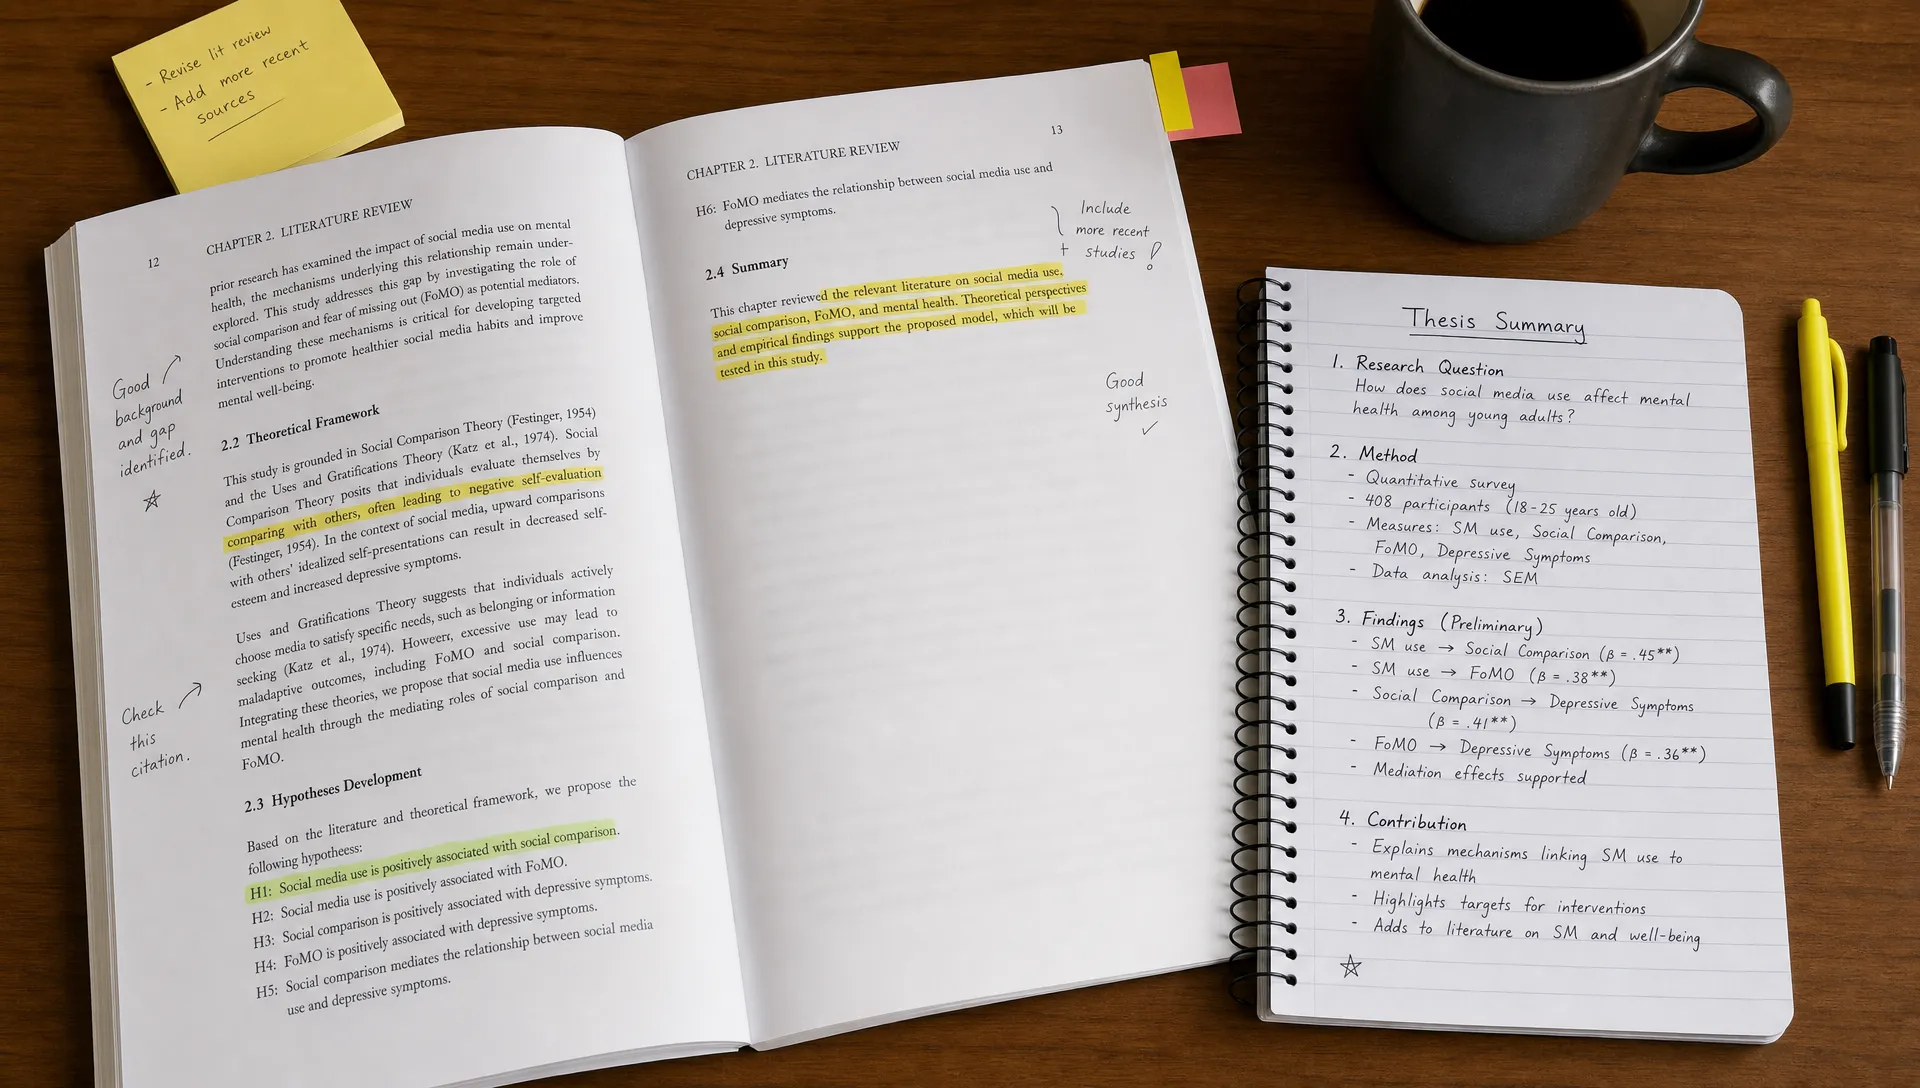 - Revise lit review
- Add more recent
sources
12
CHAPTER 2. LITERATURE REVIEW
prior research has examined the impact of social media use on mental
health, the mechanisms underlying this relationship remain under-
explored. This study addresses this gap by investigating the role of
social comparison and fear of missing out (FoMO) as potential mediators.
Understanding these mechanisms is critical for developing targeted
interventions to promote healthier social media habits and improve
mental well-being.
Good
background
and gap
identified.
2.2 Theoretical Framework
This study is grounded in Social Comparison Theory (Festinger, 1954)
and the Uses and Gratifications Theory (Katz et al., 1974). Social
Comparison Theory posits that individuals evaluate themselves by
comparing with others, often leading to negative self-evaluation
(Festinger, 1954). In the context of social media, upward comparisons
with others' idealized self-presentations can result in decreased self-
esteem and increased depressive symptoms.
Uses and Gratifications Theory suggests that individuals actively
choose media to satisfy specific needs, such as belonging or information
seeking (Katz et al., 1974). Howeverr, excessive use may lead to
maladaptive outcomes, including FoMO and social comparison.
Integrating these theories, we propose that social media use influences
mental health through the mediating roles of social comparison and
FoMO.
Check
this
citation.
2.3 Hypotheses Development
Based on the literature and theoretical framework, we propose the
following hypotheess:
H1: Social media use is positively associated with social comparison.
H2: Social media use is positively associated with FoMO.
H3: Social comparison is positively associated with depressive symptoms.
H4: FoMO is positively associated with depressive symptoms.
H5: Social comparison mediates the relationship between social media
use and depressive symptoms.
CHAPTER 2. LITERATURE REVIEW
13
H6: FoMO mediates the relationship between social media use and
depressive symptoms.
Include
more recent
+ studies !
2.4 Summary
This chapter reviewed the relevant literature on social media use,
social comparison, FoMO, and mental health. Theoretical perspectives
and empirical findings support the proposed model, which will be
tested in this study.
Good
synthesis
✓
Thesis Summary
1. Research Question
How does social media use affect mental
health among young adults?
2. Method
- Quantitative survey
- 408 participants (18-25 years old)
- Measures: SM use, Social Comparison,
FoMO, Depressive Symptoms
- Data analysis: SEM
3. Findings (Preliminary)
- SM use → Social Comparison (β = .45**)
- SM use → FoMO (β = .38**)
- Social Comparison → Depressive Symptoms
(β = .41**)
- FoMO → Depressive Symptoms (β = .36**)
- Mediation effects supported
4. Contribution
- Explains mechanisms linking SM use to
mental health
- Highlights targets for interventions
- Adds to literature on SM and well-being